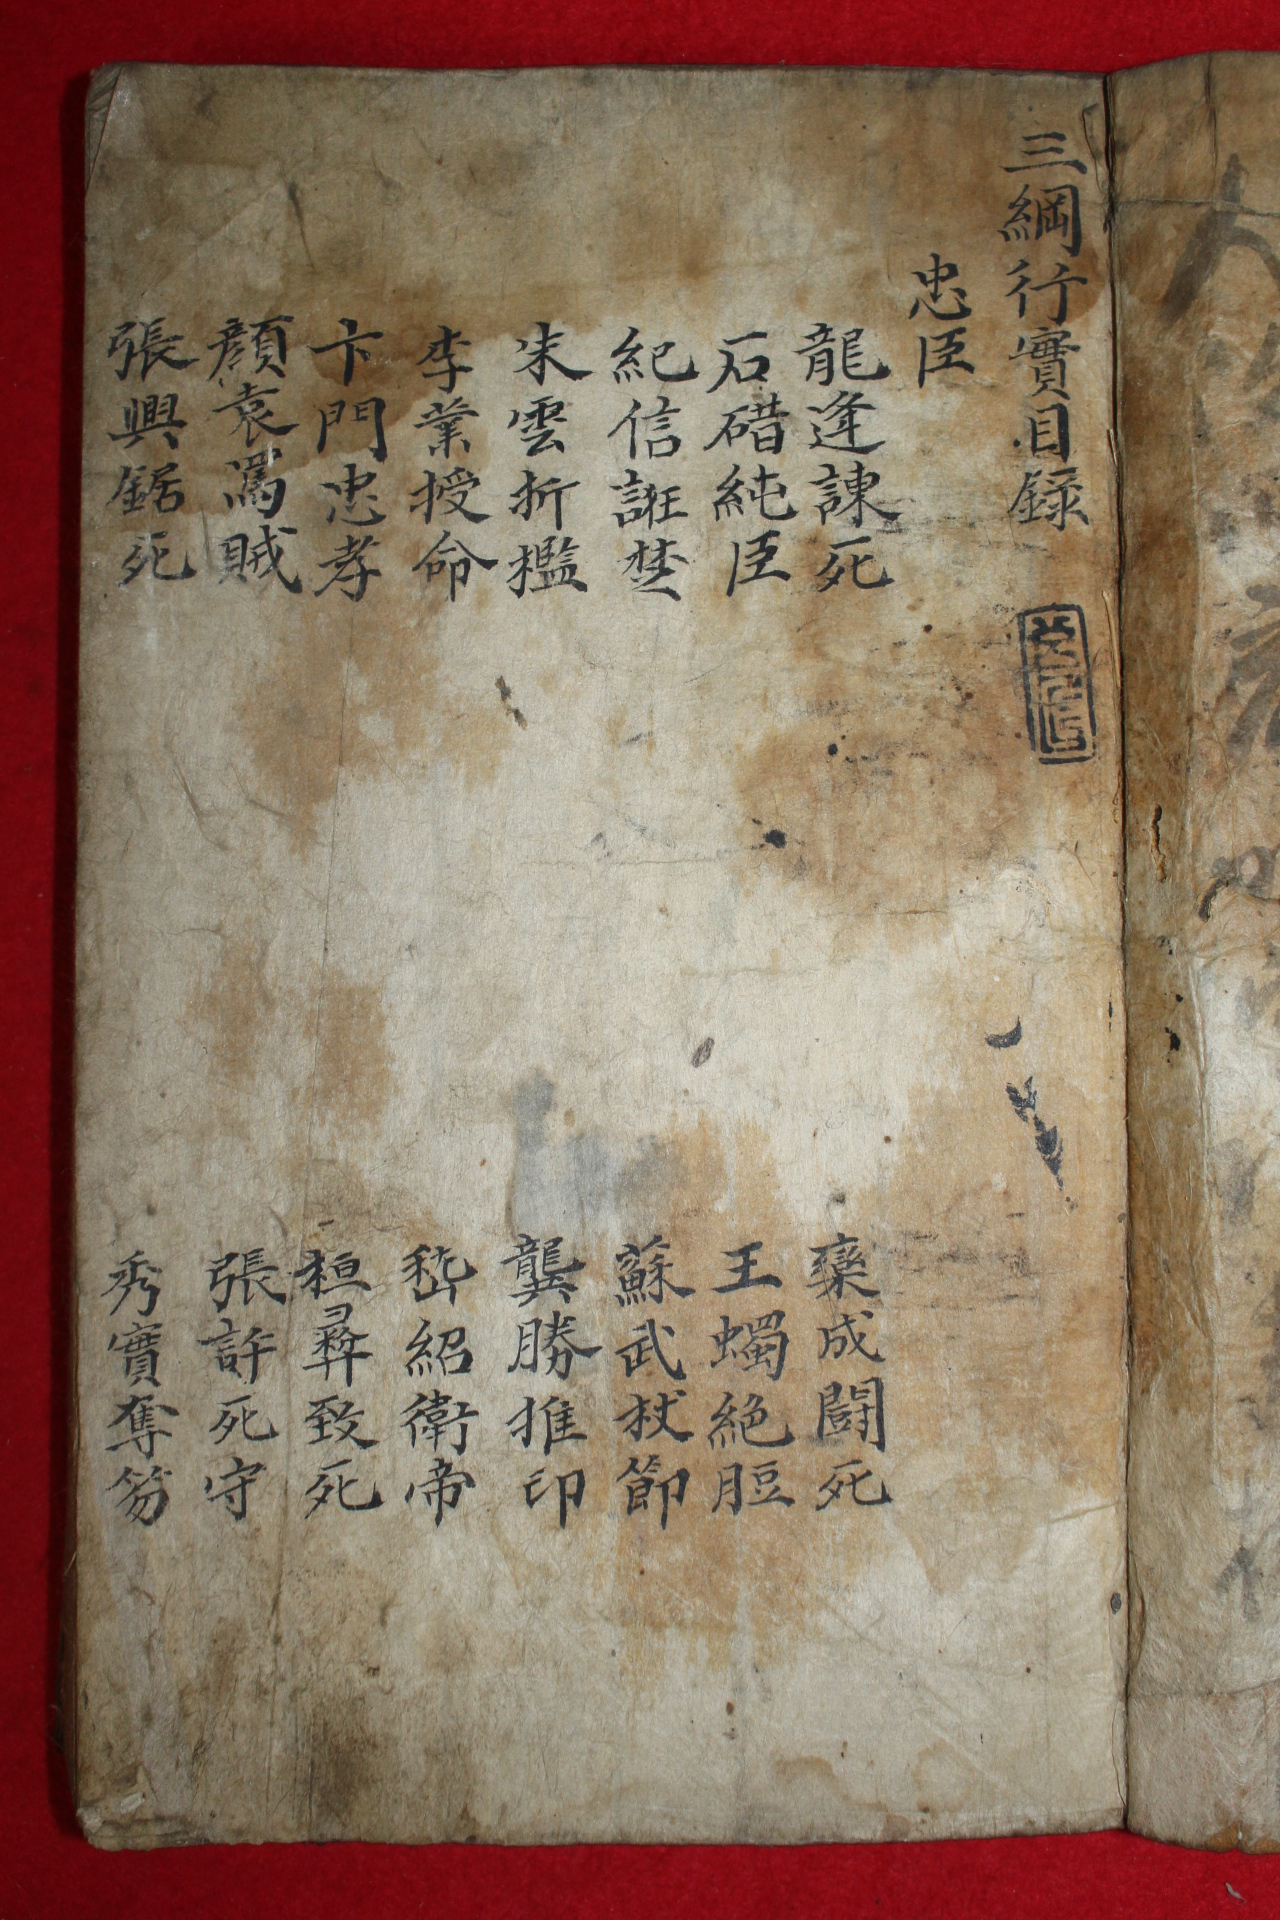 三綱行實目録
忠臣
龍逄諫死
欒成鬪死
石碏純臣
王蠋絶脰
紀信誑楚
蘇武杖節
朱雲折檻
龔勝推印
李業授命
嵇紹衛帝
卞門忠孝
桓彛致死
顔袁罵賊
張許死守
張興鋸死
秀實奪笏